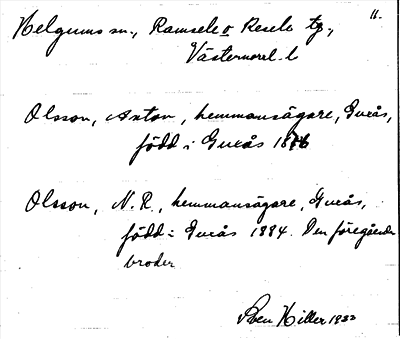 11.
Helgums sn., Ramsele o Resele tg.,
Västernorrl. l
Olsson, Anton, hemmansägare, Gurås,
född i Gurås 1886
Olsson, N. R., hemmansägare, Gurås,
född i Gurås 1884. Den föregående
broder
Sven Hiller 1933